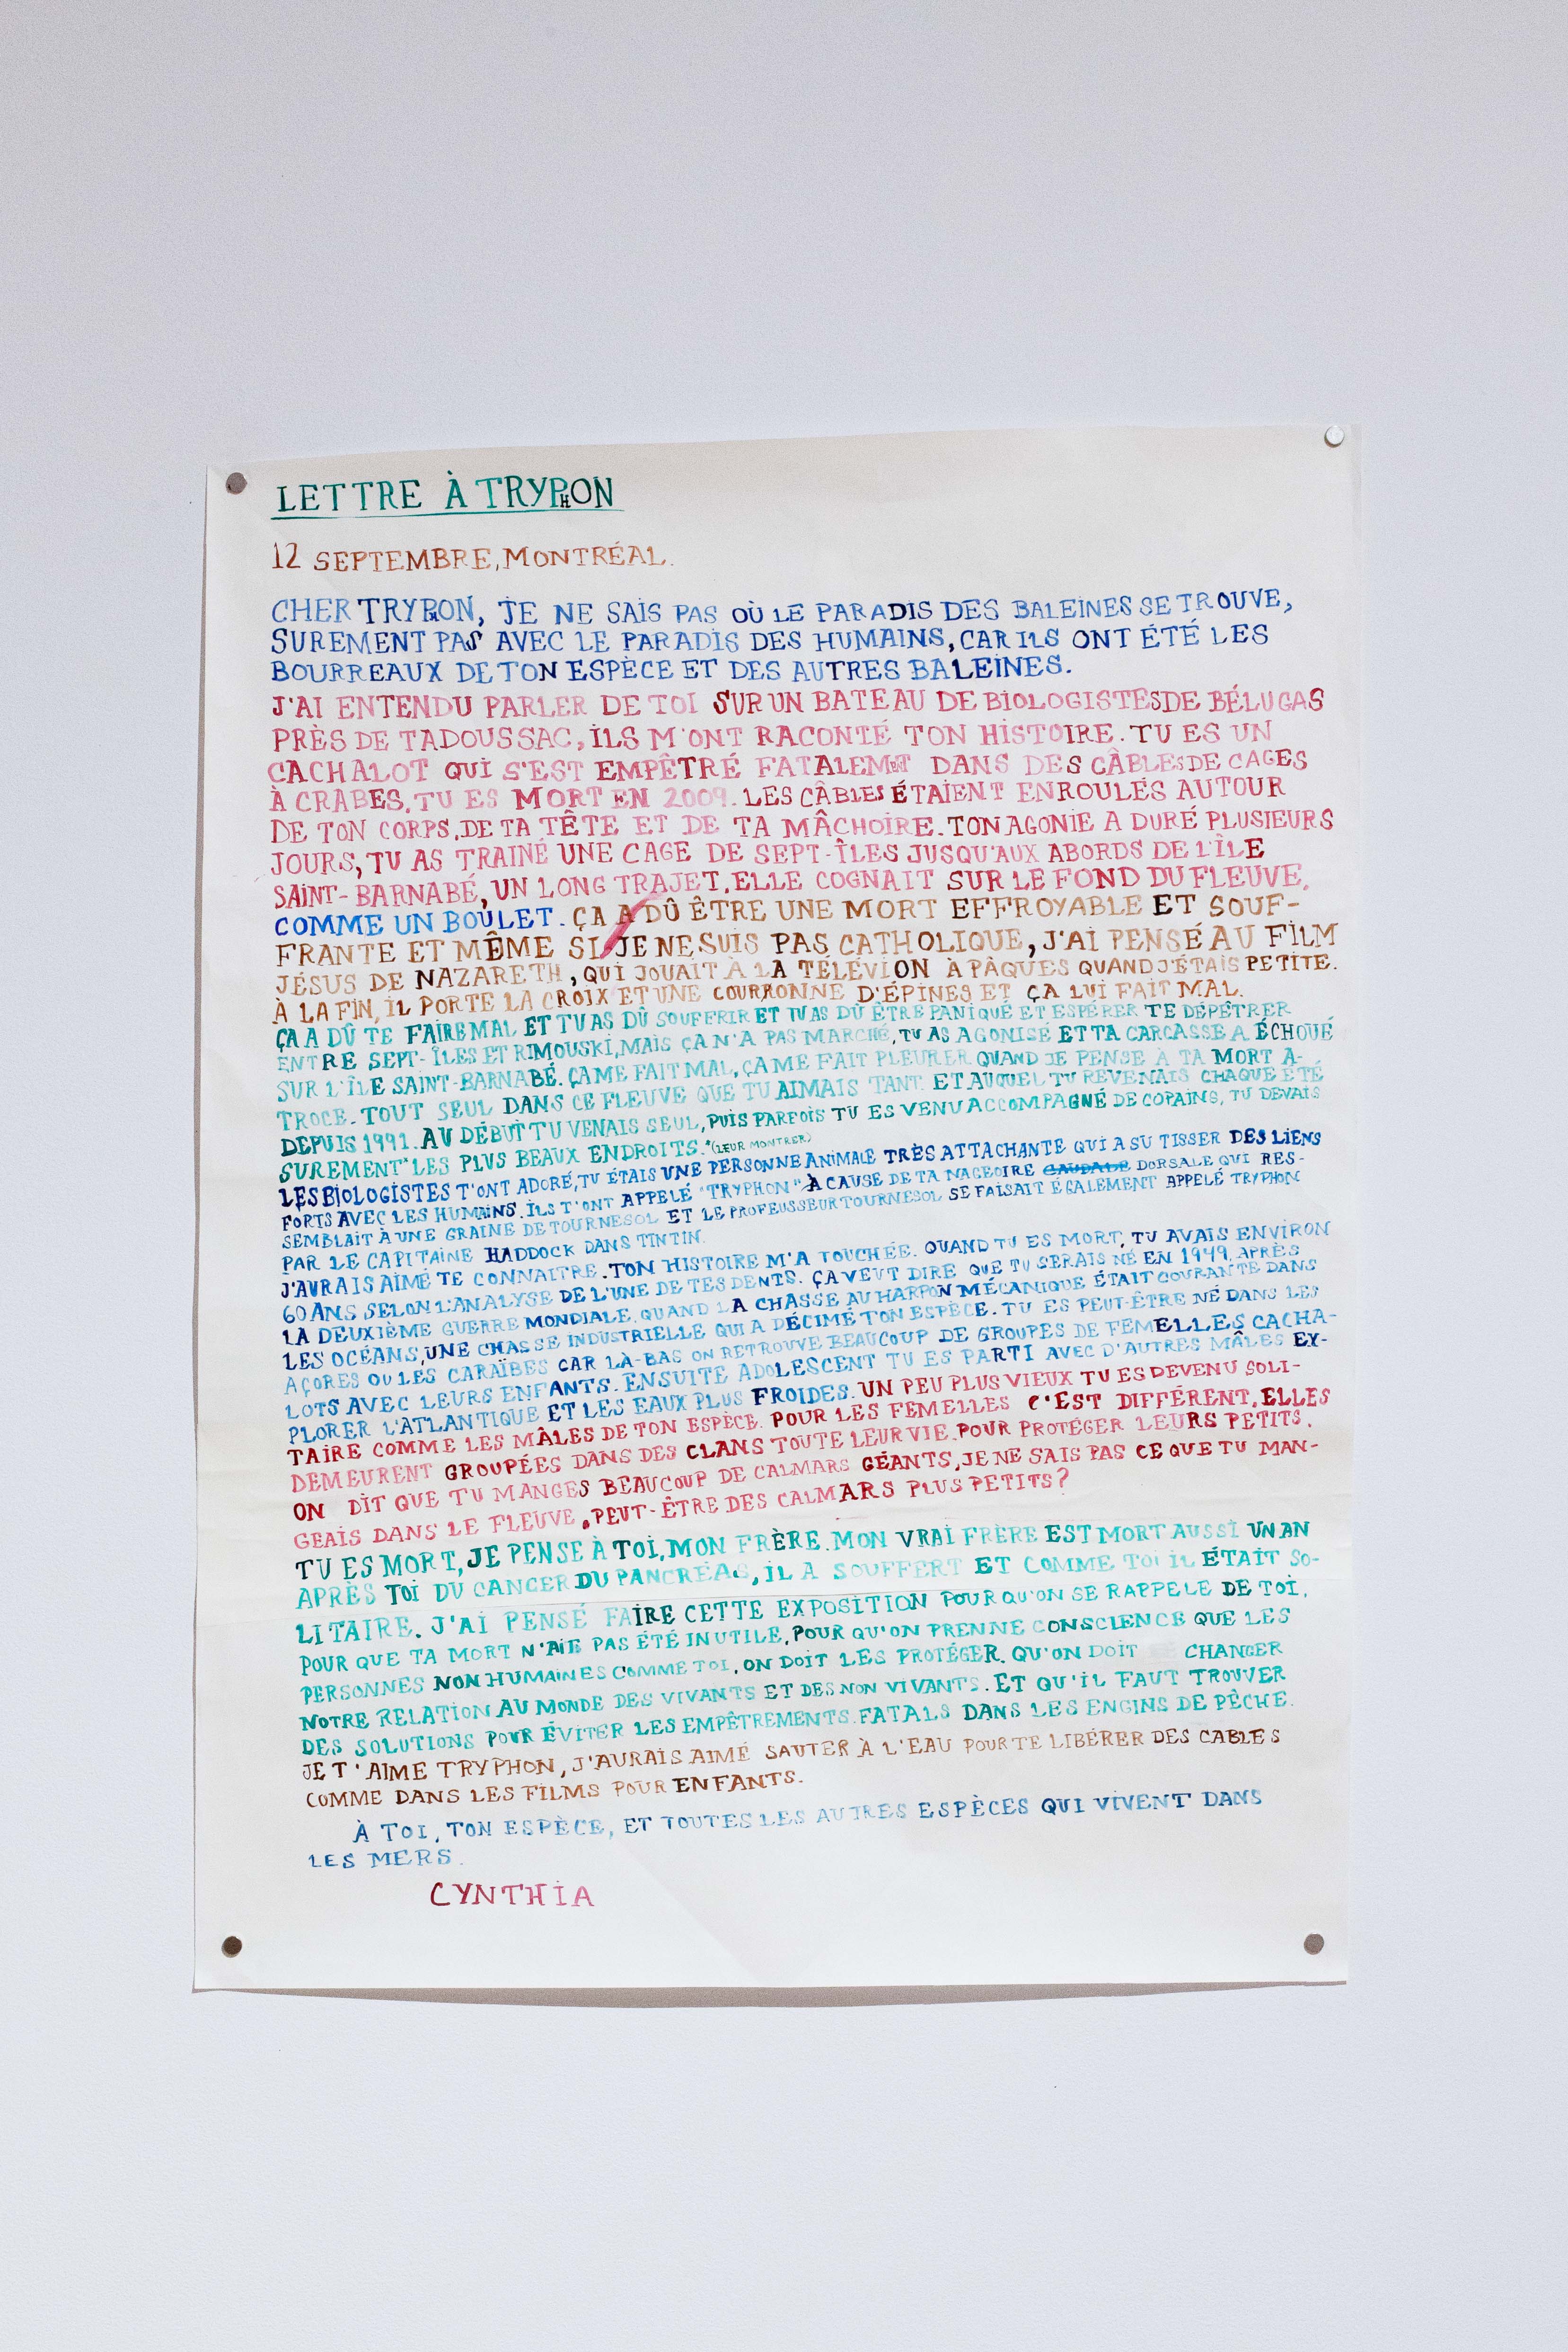 LETTRE À TRYPHON
12 SEPTEMBRE, MONTRÉAL.
CHER TRYPHON, JE NE SAIS PAS OÙ LE PARADIS DES BALEINES SE TROUVE,
SUREMENT PAS AVEC LE PARADIS DES HUMAINS, CAR ILS ONT ÉTÉ LES
BOURREAUX DE TON ESPÈCE ET DES AUTRES BALEINES.
J'AI ENTENDU PARLER DE TOI SUR UN BATEAU DE BIOLOGISTES DE BÉLUGAS
PRÈS DE TADOUSSAC, ILS M'ONT RACONTÉ TON HISTOIRE. TU ES UN
CACHALOT QUI S'EST EMPÊTRÉ FATALEMENT DANS DES CÂBLES DE CAGES
À CRABES. TU ES MORT EN 2009. LES CÂBLES ÉTAIENT ENROULÉS AUTOUR
DE TON CORPS, DE TA TÊTE ET DE TA MÂCHOIRE. TON AGONIE A DURÉ PLUSIEURS
JOURS, TU AS TRAINÉ UNE CAGE DE SEPT-ÎLES JUSQU'AUX ABORDS DE L'ÎLE
SAINT-BARNABÉ, UN LONG TRAJET. ELLE COGNAIT SUR LE FOND DU FLEUVE,
COMME UN BOULET. ÇA A DÛ ÊTRE UNE MORT EFFROYABLE ET SOUF-
FRANTE ET MÊME SI JE NE SUIS PAS CATHOLIQUE, J'AI PENSÉ AU FILM
JÉSUS DE NAZARETH, QUI JOUAIT À LA TÉLÉVION À PÂQUES QUAND J'ÉTAIS PETITE.
À LA FIN, IL PORTE LA CROIX ET UNE COURRONNE D'ÉPINES ET ÇA LUI FAIT MAL.
ÇA A DÛ TE FAIRE MAL ET TU AS DÛ SOUFFRIR ET TU AS DÛ ÊTRE PANIQUÉ ET ESPÉRER TE DÉPÊTRER
ENTRE SEPT-ÎLES ET RIMOUSKI, MAIS ÇA N'A PAS MARCHÉ, TU AS AGONISÉ ET TA CARCASSE A ÉCHOUÉ
SUR L'ÎLE SAINT-BARNABÉ. ÇA ME FAIT MAL, ÇA ME FAIT PLEURER QUAND JE PENSE À TA MORT A-
TROCE. TOUT SEUL DANS CE FLEUVE QUE TU AIMAIS TANT ET AUQUEL TU REVENAIS CHAQUE ÉTÉ
DEPUIS 1991. AU DÉBUT TU VENAIS SEUL, PUIS PARFOIS TU ES VENU ACCOMPAGNÉ DE COPAINS, TU DEVAIS
SUREMENT* LES PLUS BEAUX ENDROITS. *(LEUR MONTRER)
LES BIOLOGISTES T'ONT ADORÉ, TU ÉTAIS UNE PERSONNE ANIMALE TRÈS ATTACHANTE QUI A SU TISSER DES LIENS
FORTS AVEC LES HUMAINS. ILS T'ONT APPELÉ "TRYPHON" À CAUSE DE TA NAGEOIRE CAUDALE DORSALE QUI RES-
SEMBLAIT À UNE GRAINE DE TOURNESOL ET LE PROFEUSSEUR TOURNESOL SE FAISAIT ÉGALEMENT APPELÉ TRYPHON
PAR LE CAPITAINE HADDOCK DANS TINTIN.
J'AURAIS AIMÉ TE CONNAITRE. TON HISTOIRE M'A TOUCHÉE. QUAND TU ES MORT, TU AVAIS ENVIRON
60 ANS SELON L'ANALYSE DE L'UNE DE TES DENTS. ÇA VEUT DIRE QUE TU SERAIS NÉ EN 1949, APRÈS
LA DEUXIÈME GUERRE MONDIALE, QUAND LA CHASSE AU HARPON MÉCANIQUE ÉTAIT COURANTE DANS
LES OCÉANS, UNE CHASSE INDUSTRIELLE QUI A DÉCIMÉ TON ESPÈCE. TU ES PEUT-ÊTRE NÉ DANS LES
AÇORES OU LES CARAÏBES CAR LÀ-BAS ON RETROUVE BEAUCOUP DE GROUPES DE FEMELLES CACHA-
LOTS AVEC LEURS ENFANTS. ENSUITE ADOLESCENT TU ES PARTI AVEC D'AUTRES MÂLES EX-
PLORER L'ATLANTIQUE ET LES EAUX PLUS FROIDES. UN PEU PLUS VIEUX TU ES DEVENU SOLI-
TAIRE COMME LES MÂLES DE TON ESPÈCE. POUR LES FEMELLES C'EST DIFFÉRENT, ELLES
DEMEURENT GROUPÉES DANS DES CLANS TOUTE LEUR VIE, POUR PROTÉGER LEURS PETITS.
ON DIT QUE TU MANGES BEAUCOUP DE CALMARS GÉANTS, JE NE SAIS PAS CE QUE TU MAN-
GEAIS DANS LE FLEUVE, PEUT-ÊTRE DES CALMARS PLUS PETITS?
TU ES MORT, JE PENSE À TOI, MON FRÈRE. MON VRAI FRÈRE EST MORT AUSSI UN AN
APRÈS TOI DU CANCER DU PANCRÉAS, IL A SOUFFERT ET COMME TOI IL ÉTAIT SO-
LITAIRE. J'AI PENSÉ FAIRE CETTE EXPOSITION POUR QU'ON SE RAPPELE DE TOI,
POUR QUE TA MORT N'AIE PAS ÉTÉ INUTILE, POUR QU'ON PRENNE CONSCIENCE QUE LES
PERSONNES NON HUMAINES COMME TOI, ON DOIT LES PROTÉGER. QU'ON DOIT CHANGER
NOTRE RELATION AU MONDE DES VIVANTS ET DES NON VIVANTS. ET QU'IL FAUT TROUVER
DES SOLUTIONS POUR ÉVITER LES EMPÊTREMENTS FATALS DANS LES ENGINS DE PÊCHE.
JE T'AIME TRYPHON, J'AURAIS AIMÉ SAUTER À L'EAU POUR TE LIBÉRER DES CABLES
COMME DANS LES FILMS POUR ENFANTS.
À TOI, TON ESPÈCE, ET TOUTES LES AUTRES ESPÈCES QUI VIVENT DANS
LES MERS.
CYNTHIA